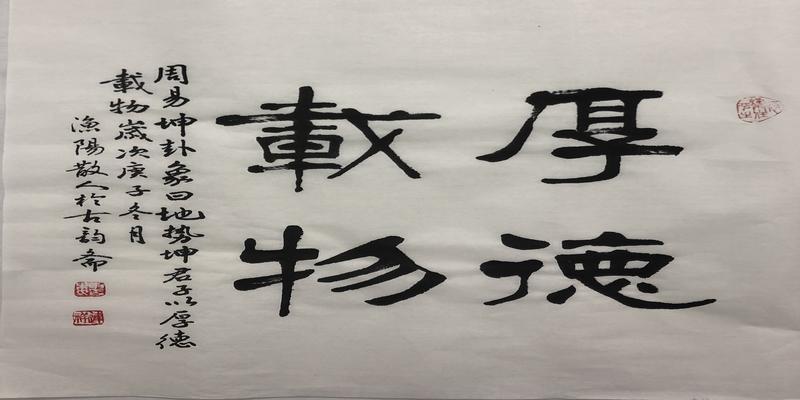 厚德
載物
周易坤卦象曰地勢坤君子以厚德
載物歲次庚子冬月
漁陽散人於古韵斋